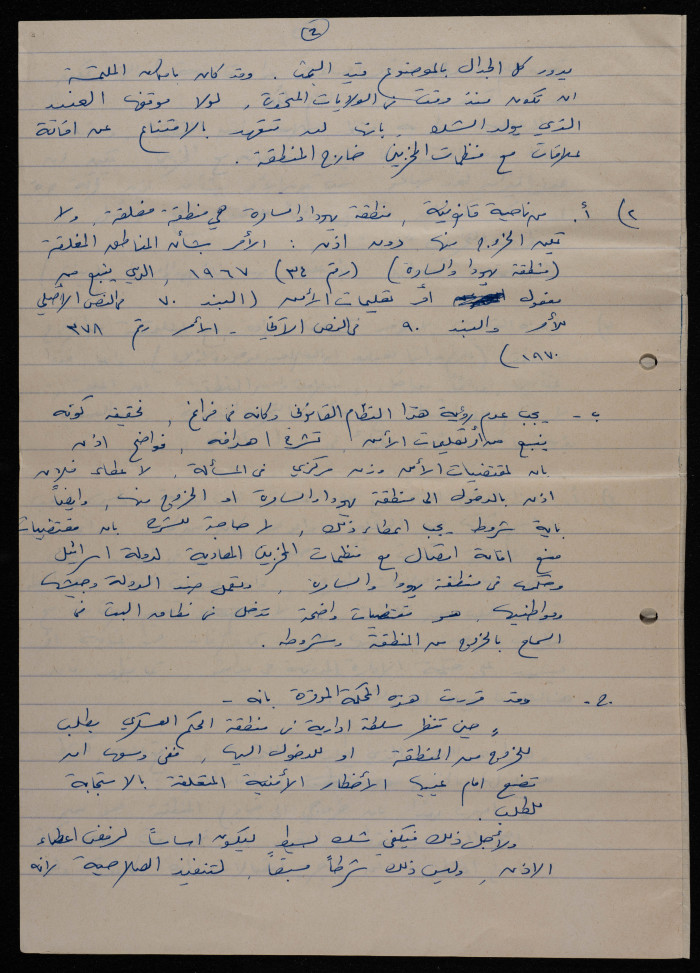 (٤)
يدور كل الجدال بالموضوع قيد البحث. وقد كان بامكان الملتمسة
ان تكون منذ وقت في الولايات المتحدة، لولا موقفها العنيد
الذي يولد الشك، بانها لم تتعهد بالامتناع عن اقامة
علاقات مع منظمات المخربين خارج المنطقة.
٢) أ. من ناحية قانونية، منطقة يهودا والسامرة هي منطقة مغلقة، ولا
يمكن الخروج منها دون اذن: الأمر بشأن المناطق المغلقة
(منطقة يهودا والسامرة) (رقم ٣٤) ١٩٦٧، الذي ينبع من
مفعول أمر تعليمات الأمن (البند ٧٠ في النص الأصلي
للأمر والبند ٩٠ في النص الآتي - الأمر رقم ٣٧٨
١٩٧٠)
ب- يجب عدم رؤية هذا النظام القانوني وكانه في فراغ، فحقيقة كونه
ينبع من أمر تعليمات الأمن، تشرح اهدافه، فواضح اذن
بان لمقتضيات الأمن وزن مركزي في المسألة، لاعطاء فلان
اذن بالدخول الى منطقة يهودا والسامرة او الخروج منها، وايضاً
باية شروط يجب اعطاء ذلك، لا حاجة للشرح بان مقتضيات
منع اقامة اتصال مع منظمات المخربين المعادية لدولة اسرائيل
وحكمها في منطقة يهودا والسامرة، وتعمل ضد الدولة وجيشها
ومواطنيها، هو مقتضيات واضحة تدخل في نطاق البت في
السماح بالخروج من المنطقة وشروطه.
ج- وقد قررت هذه المحكمة الموقرة بانه -
" حين تنظر سلطة ادارية في منطقة الحكم العسكري بطلب
للخروج من المنطقة او للدخول اليها، ففي وسعها ان
تضع امام عينيها الأخطار الأمنية المتعلقة بالاستجابة
للطلب.
ولأجل ذلك فيكفي شك بسيط ليكون اساساً لرفض اعطاء
الاذن، وليس ذلك شرطاً مسبقاً، لتنفيذ الصلاحية لانه